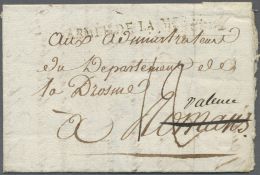 ARMÉE DE LA
aux administrateurs
du Departement de
la Drosme
valence
a Romans
12